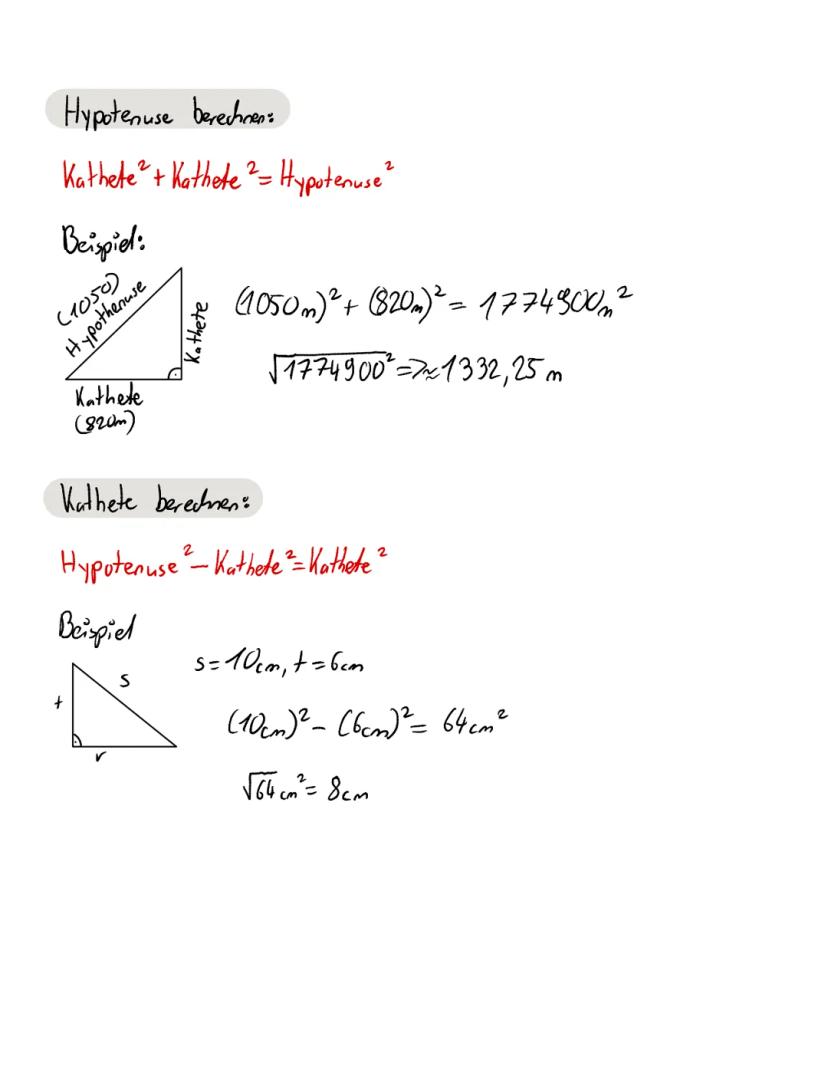 Hypotenuse berechnen:
Kathete² + Kathete² = Hypotenuse²
Beispiel:
(1050)
Hypothenuse
Kathete
Kathete
(820m)
(1050m)² + (820m)² = 1774900m²
√1774900² => ≈ 1332,25 m
Kathete berechnen:
Hypotenuse² - Kathete² = Kathete²
Beispiel
t
s
r
s = 10cm, t = 6cm
(10cm)² - (6cm)² = 64cm²
√64 cm² = 8cm